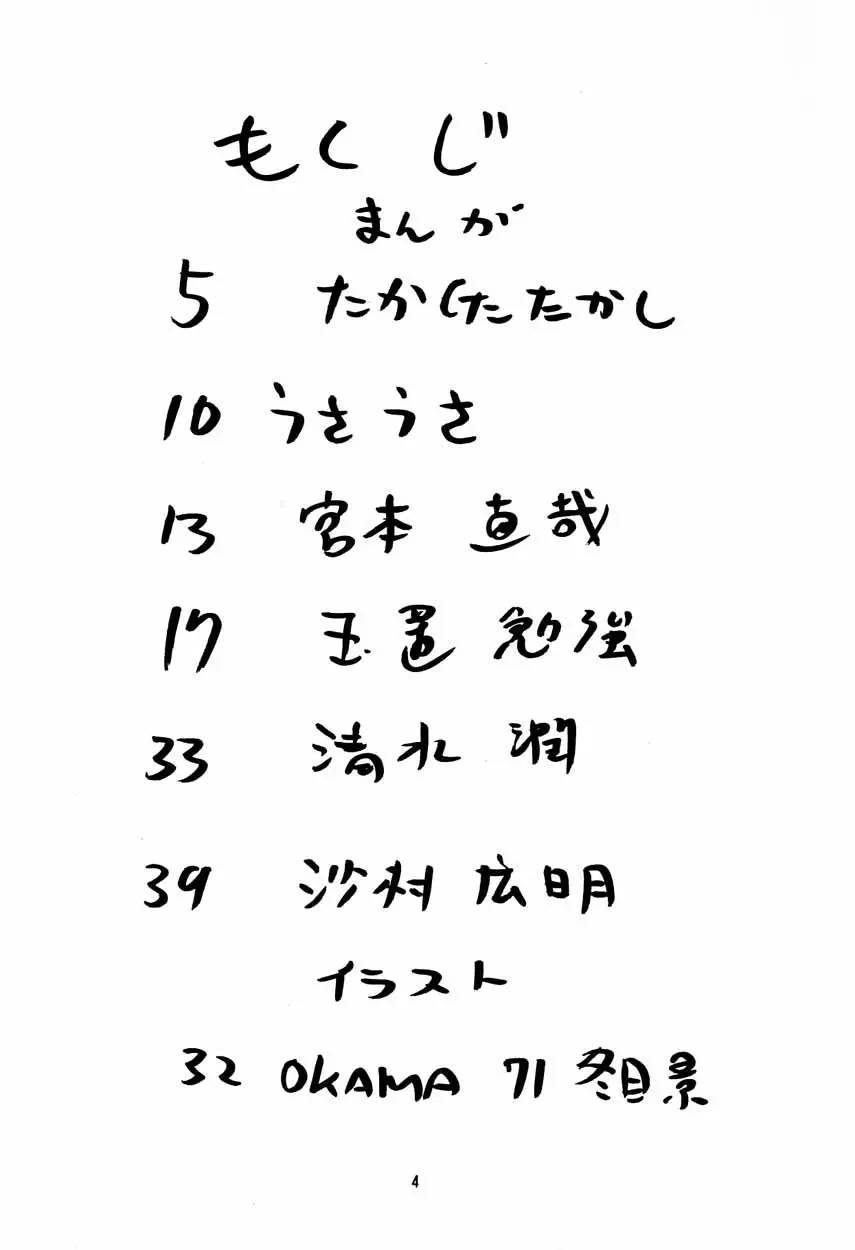 もくじ
まんが
5 たかはしたたかし
10 うさうさ
13 宮本 直哉
17 玉置 勉強
33 清水 潤
39 沙村 広明
イラスト
32 OKAMA 71 冬目景
4